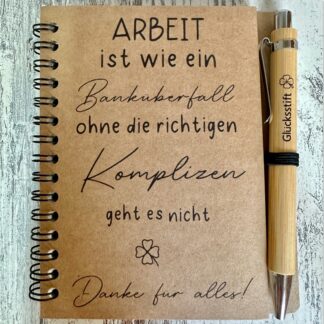 ARBEIT
ist wie ein
Banküberfall
ohne die richtigen
Komplizen
geht es nicht
Danke für alles!
Glücksstift